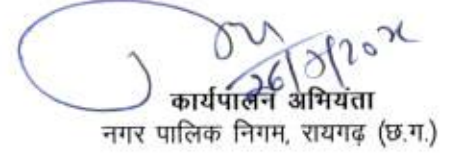 कार्यपालन अभियंता
नगर पालिक निगम, रायगढ़ (छ.ग.)